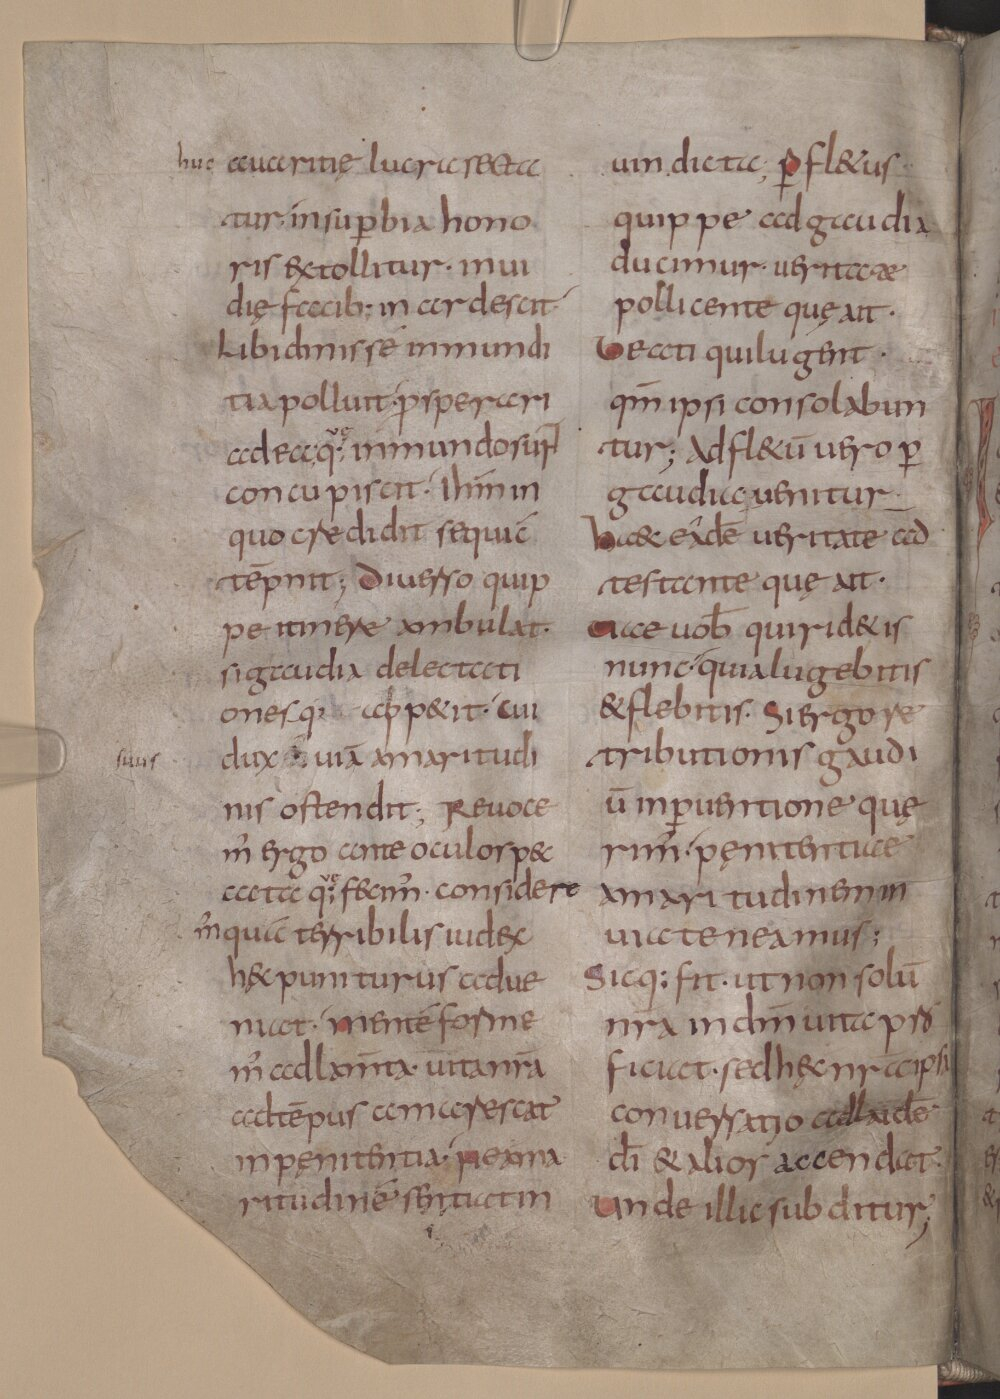 huc auaritię lucra secta
tur. insuꝑbia hono
ris extollitur. inui
dię facib; inardescit
Libidinis se inmundi
tia polluit. ꝓsperari
adeaq; inmundo sur
concupiscit. Ihm in
quo credidit sequi c̄
tēpnit; Diuerso quip
pe itinere ambulat.
si gaudia delectati
ones q; appetit. cui
suis dux uiā amaritudi
nis ostendit; Reuoce
m̄ ergo ante oculos pec
cata quę fecim̄. considere
m̄ quā terribilis iudex
hęc puniturus adue
niat. mentē forme
m̄ ad lam̄ta. uita nr̄a
ad tēpus amarescat
in pęnitentia. ne ama
ritudinē sentiat in
uindicta; ꝑ fletus
quippe ad gaudia
ducimur. ueritate
pollicente quę ait.
Beati qui lugent.
qm̄ ipsi consolabun
tur; Ad fletū uero ꝑ
gaudia uenitur.
Hac eadē ueritate ad
testante quę ait.
Uae uob̄ qui ridetis
nunc. quia lugebitis
& flebitis. Si ergo re
tributionis gaudi
ū in ꝑuentione quę
rim̄. pęnitentiae
amaritudinem in
uia teneamus;
Sicq; fit. ut non solū
nr̄a in dm̄ uita pro
ficiat. sed hęc nr̄a ipsa
conuersatio ad laudē
dī & alios accendat.
Unde illic subditur;